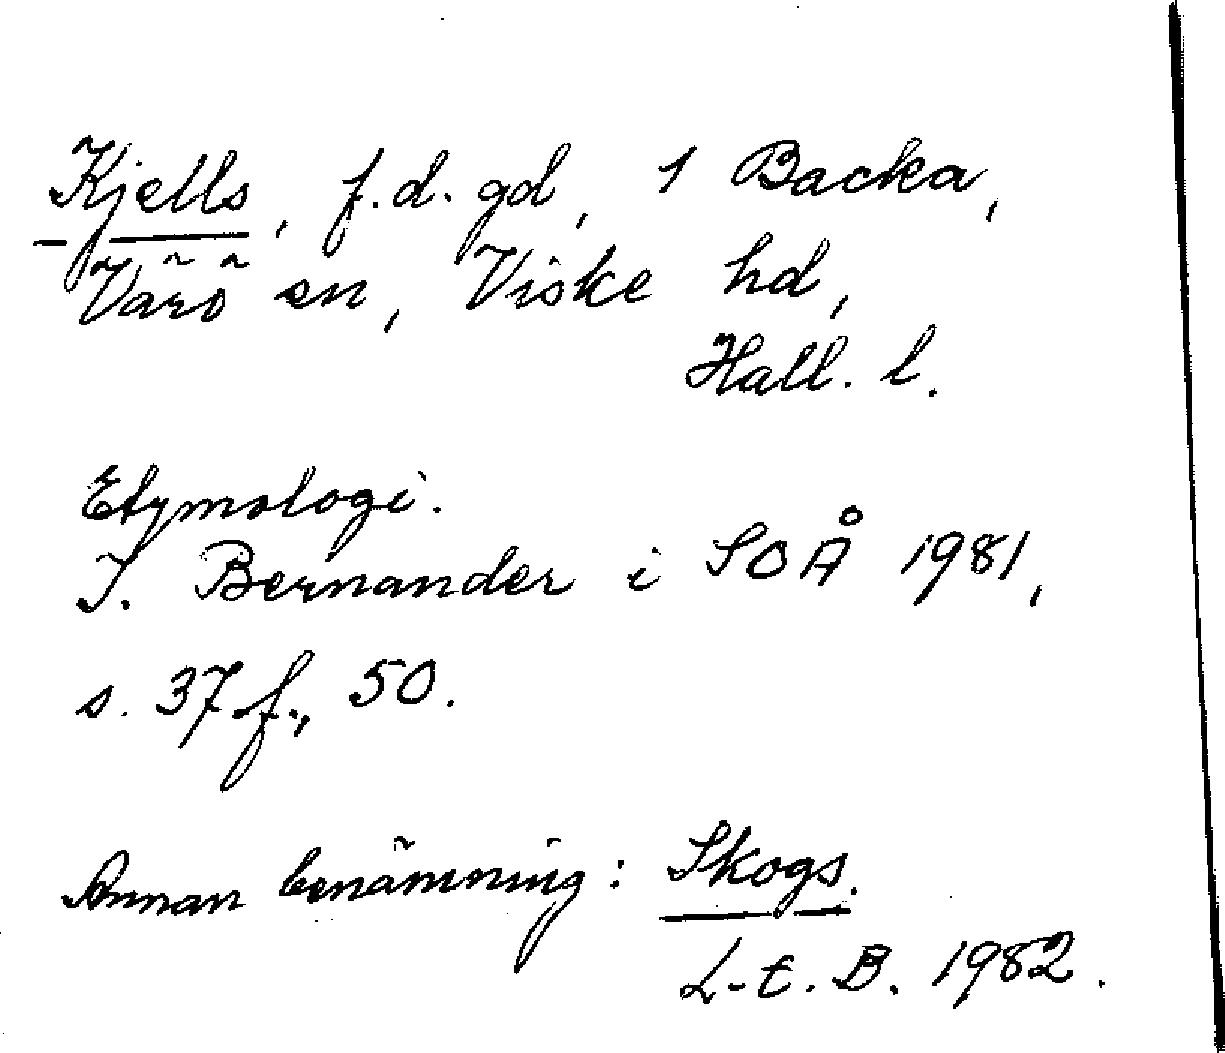 Kjells, f.d. gd, 1 Backa,
Värö sn, Viske hd,
Hall. l.
Etymologi.
I. Bernander i SOÅ 1981,
s. 37 f., 50.
Annan benämning: Skogs.
L-E. B. 1982.